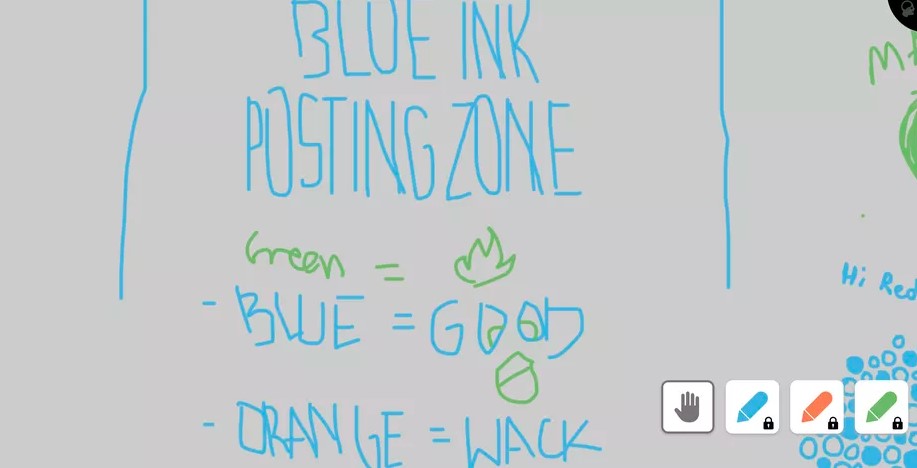 BLUE INK
POSTING ZONE
Green =
- BLUE = GOOD
- ORANGE = WACK
Hi Red